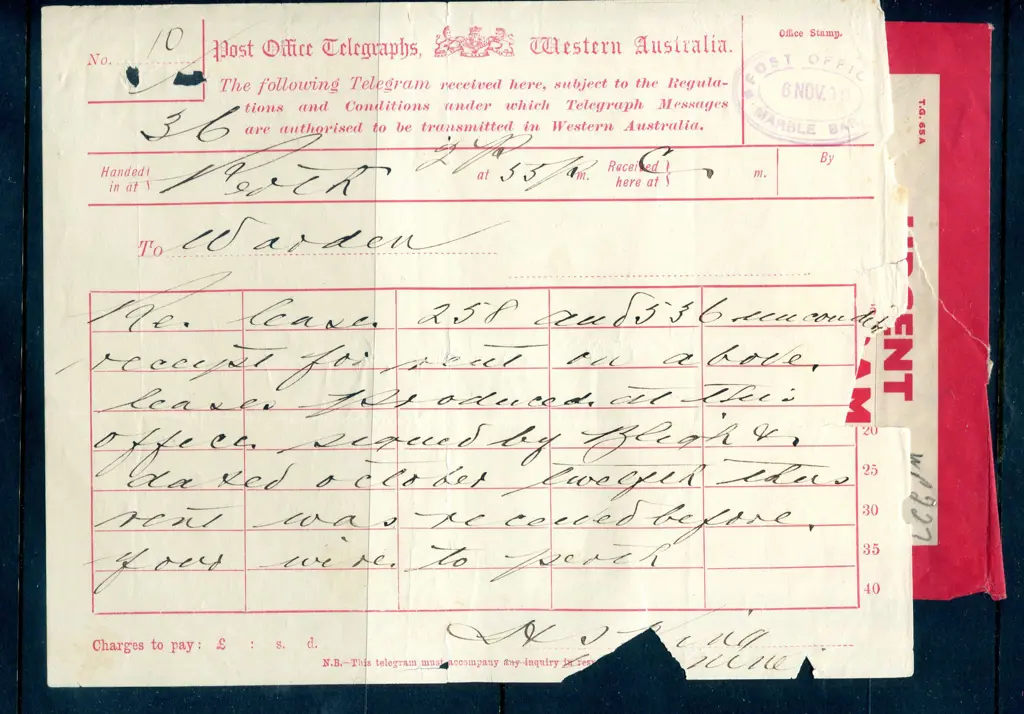 No. 10
Post Office Telegraphs, Western Australia.
Office Stamp.
The following Telegram received here, subject to the Regula-
tions and Conditions under which Telegraph Messages
are authorised to be transmitted in Western Australia.
POST OFFICE
6 NOV.
MARBLE BAR
36
Handed in at Perth at 55 p m. Received here at m. By
To Warden
Re. lease. 258 and 536 uncondit
receipt for rent on above.
leases produced. at this
office. signed by Bligh &.
dated october twelfth thus
rent was received before.
your wire. to perth
20
25
30
35
40
Charges to pay: £ : s. d.
H S King
N.B.—This telegram must accompany any inquiry in res
T.G. 65A
URGENT
AM